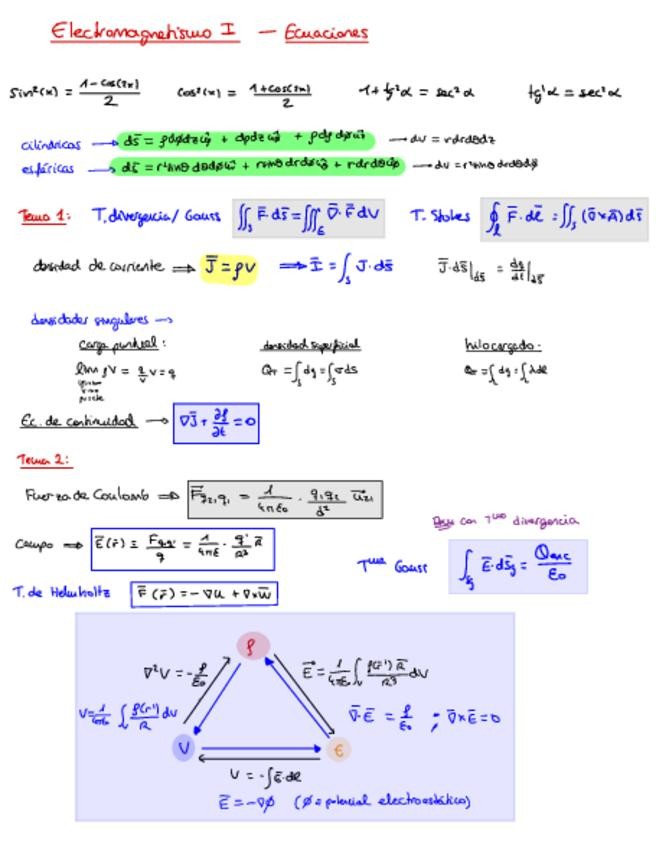 Electromagnetismo I — Ecuaciones
sin²(x) = (1-cos(2x))/2   cos²(x) = (1+cos(2x))/2   1+tg²α = sec²α   tg'α = sec²α
cilíndricas → ds̄ = ρdφdz û + dρdz û + ρdρdφ û → dv = rdrdθdz
esféricas → ds̄ = r²sinθdθdφ û + rsinθdrdφ û + rdrdθ û → dv = r²sinθdrdθdφ
Tema 1: T. divergencia/Gauss ∬ₛ F̄·ds̄ = ∭ ∇̄·F̄ dV   T. Stokes ∮ F̄·dℓ̄ = ∬ₛ (∇̄×Ā)ds̄
densidad de corriente ⟹ J̄ = ρv ⟹ Ī = ∫ₛ J·ds̄   J̄·ds̄|ds̄ = dq/dt|ds̄
densidades singulares →
carga puntual:   densidad superficial   hilo cargado:
lim ρV = q/V V = q   Q_T = ∫ₛ dq = ∫ₛ σds   Q_T = ∫ dq = ∫ λdℓ
Ec. de continuidad → ∇J̄ + ∂ρ/∂t = 0
Tema 2:
Fuerza de Coulomb ⟹ F̄q₂,q₁ = 1/4πε₀ · q₁q₂/d² u⃗₂₁
con Tma divergencia
Campo ⟹ Ē(r̄) = Fqq'/q = 1/4πε · q'/R² R̄
Tma Gauss ∫ Ē·ds̄ = Qenc/ε₀
T. de Helmholtz F̄(r̄) = -∇u + ∇×w̄
ρ
∇²V = -ρ/ε₀   E⃗ = 1/4πε₀ ∫ᵥ ρ(r')R̄/R³ dV
V = 1/4πε₀ ∫ᵥ ρ(r')/R dV   ∇̄·Ē = ρ/ε₀ ; ∇̄×Ē = 0
V   E
V = -∫Ē·dℓ
Ē = -∇φ (φ = potencial electroestático)